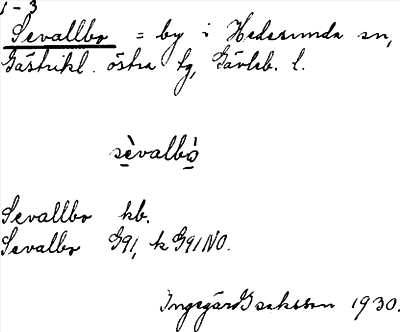 1-3
Sevallbo = by i Hedesunda sn,
Gästrikl. östra tg, Gävleb. l.
sèvalbò
Sevallbo kb.
Sevalbo G91, k G91 NO.
Ingegärd Isaksson 1930.